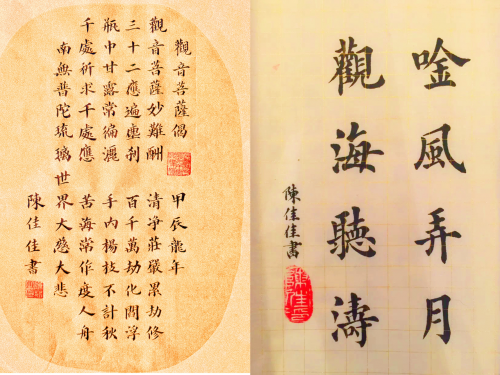 觀音菩薩偈 甲辰龍年
觀音菩薩妙難酬 清净莊嚴累劫修
三十二應遍塵刹 百千萬劫化閻浮
瓶中甘露常徧灑 手内楊枝不計秋
千處祈求千處應 苦海常作度人舟
南無普陀琉璃世界大慈大悲
陳佳佳書
唫風弄月
觀海聽濤
陳佳佳書